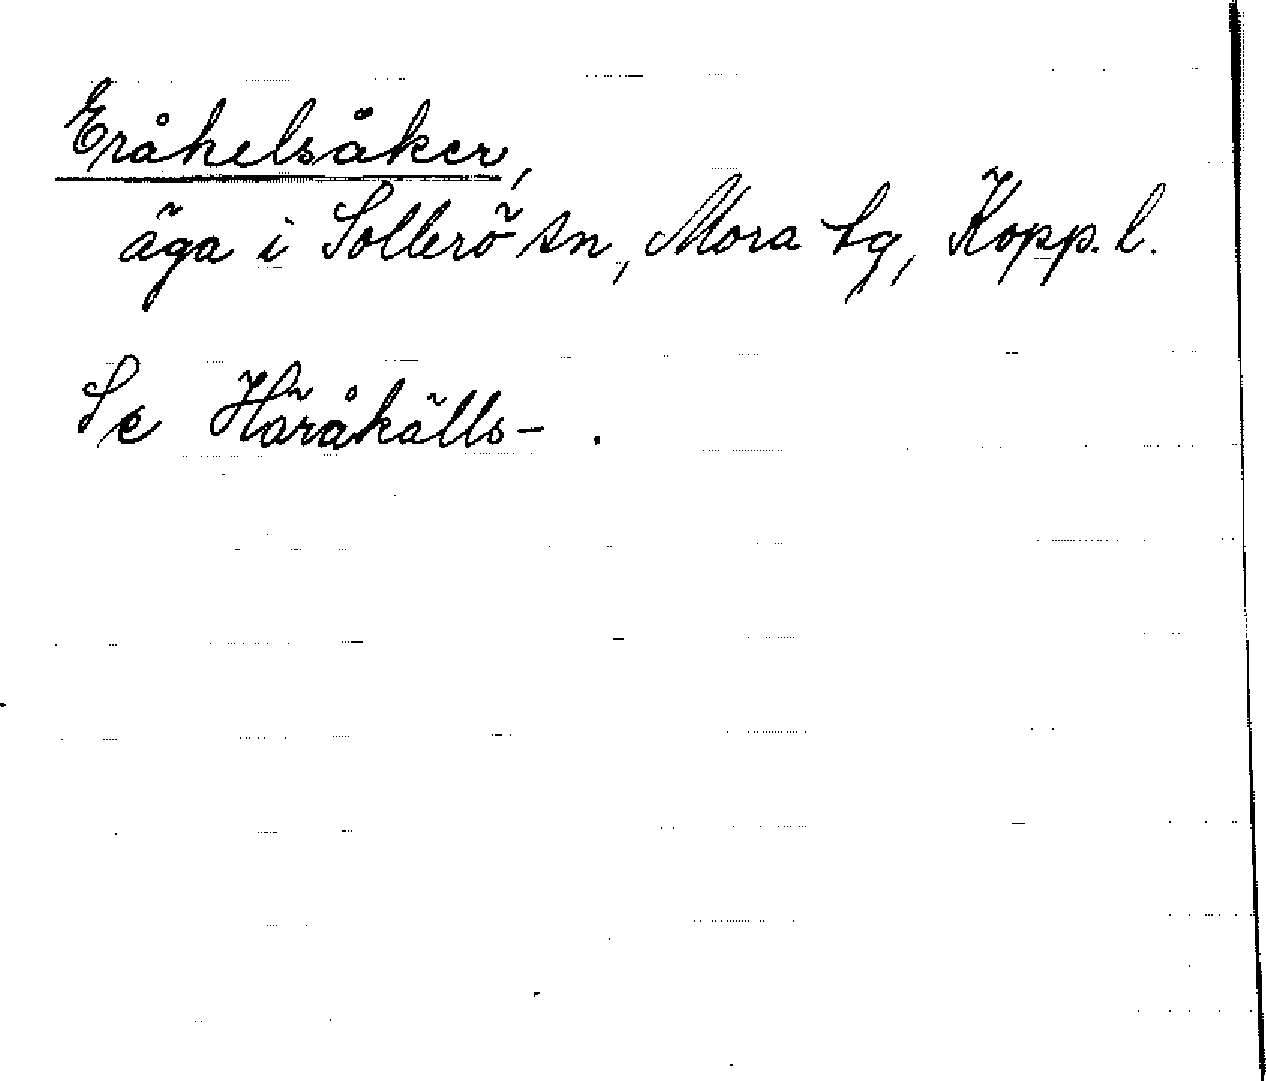 Eråhelsåker,
äga i Sollerö sn, Mora tg, Kopp. l.
Se Häråkälls- .